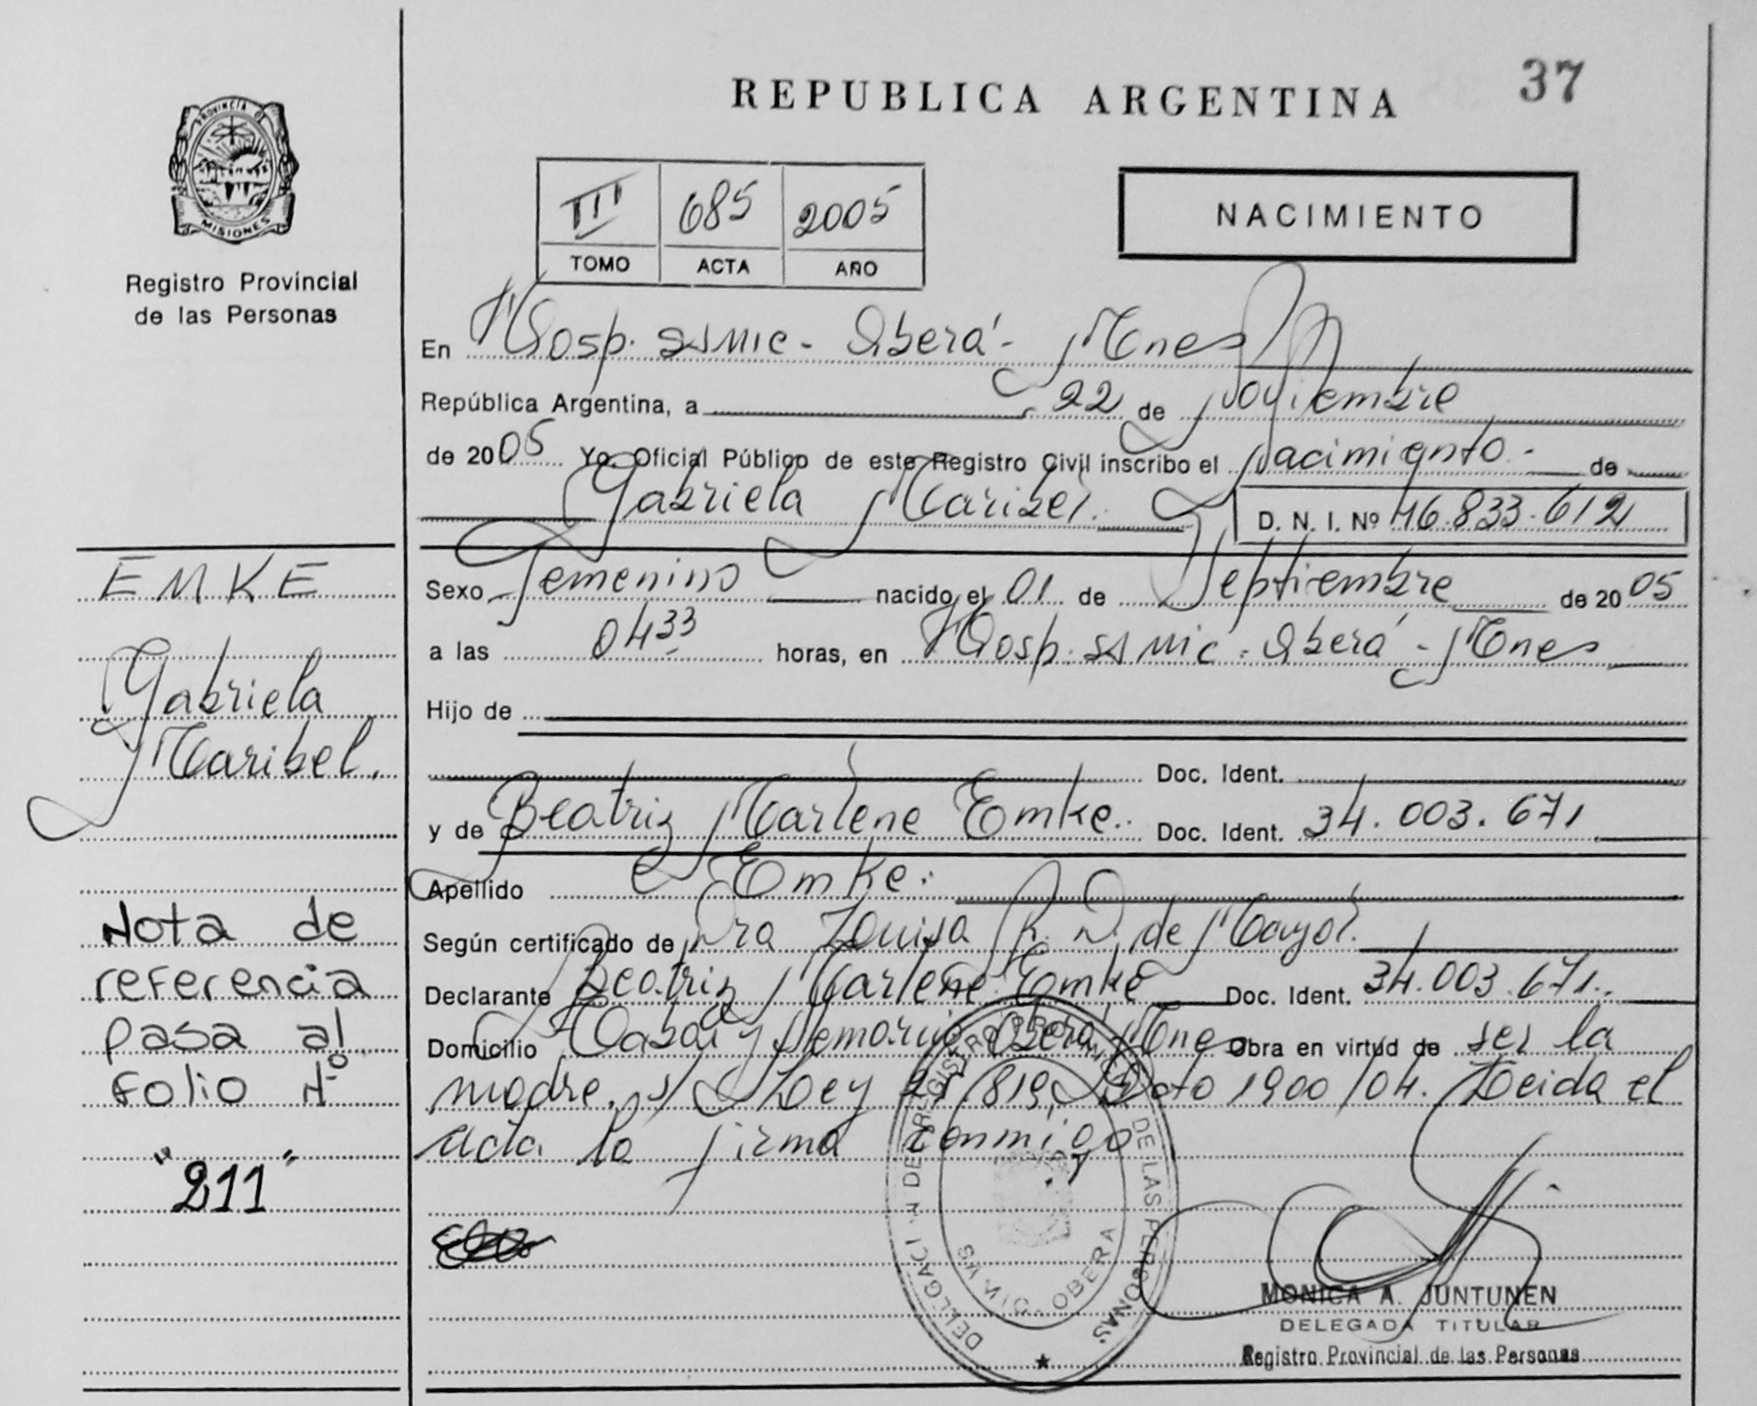 REPUBLICA ARGENTINA
37
PROVINCIA DE
MISIONES
Registro Provincial
de las Personas
III 685 2005
TOMO ACTA AÑO
NACIMIENTO
En Hosp. SSMIC - Oberá - Mnes
República Argentina, a 22 de Noviembre
de 2005 Yo, Oficial Público de este Registro Civil inscribo el Nacimiento - de
Gabriela Maribel. D. N. I. Nº 46.833.612
EMKE
Gabriela
Maribel.
Sexo Femenino nacido el 01 de Septiembre de 2005
a las 04 33 horas, en Hosp. SSMIC - Oberá - Mnes
Hijo de
Doc. Ident.
y de Beatriz Marlene Emke. Doc. Ident. 34.003.671
Apellido Emke.
Según certificado de Dra Louisa R. D. de Mayol.
Declarante Beatriz Marlene Emke Doc. Ident. 34.003.671.
Domicilio Oberá Mnes Obra en virtud de ser la
madre. s/ Ley 25.819, Dcto 1900/04. Leida el
acta la firma conmigo
Nota de
referencia
pasa al
Folio Nº
"211"
DELEGACION DEL REGISTRO PROVINCIAL DE LAS PERSONAS
OBERA
MONICA A. JUNTUNEN
DELEGADA TITULAR
Registro Provincial de las Personas